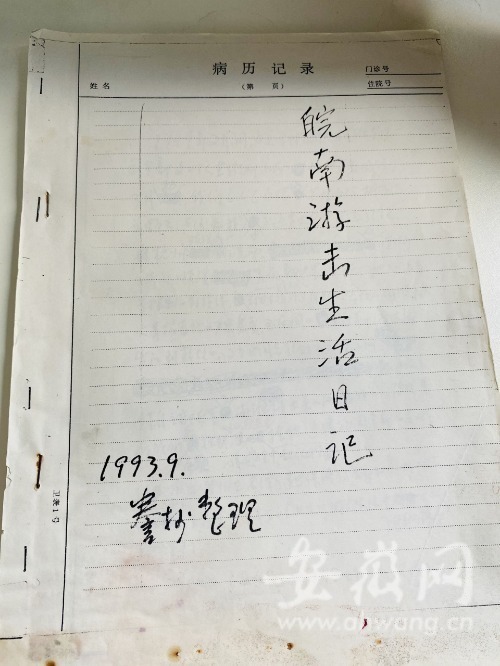 病历记录
门诊号
姓名
(第 页)
住院号
皖南游击生活日记
1993.9.
整理
卫表1号
安徽网
ahwang.cn